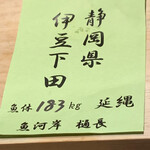 静岡県
伊豆下田
魚体 183kg 延縄
魚河岸 樋長